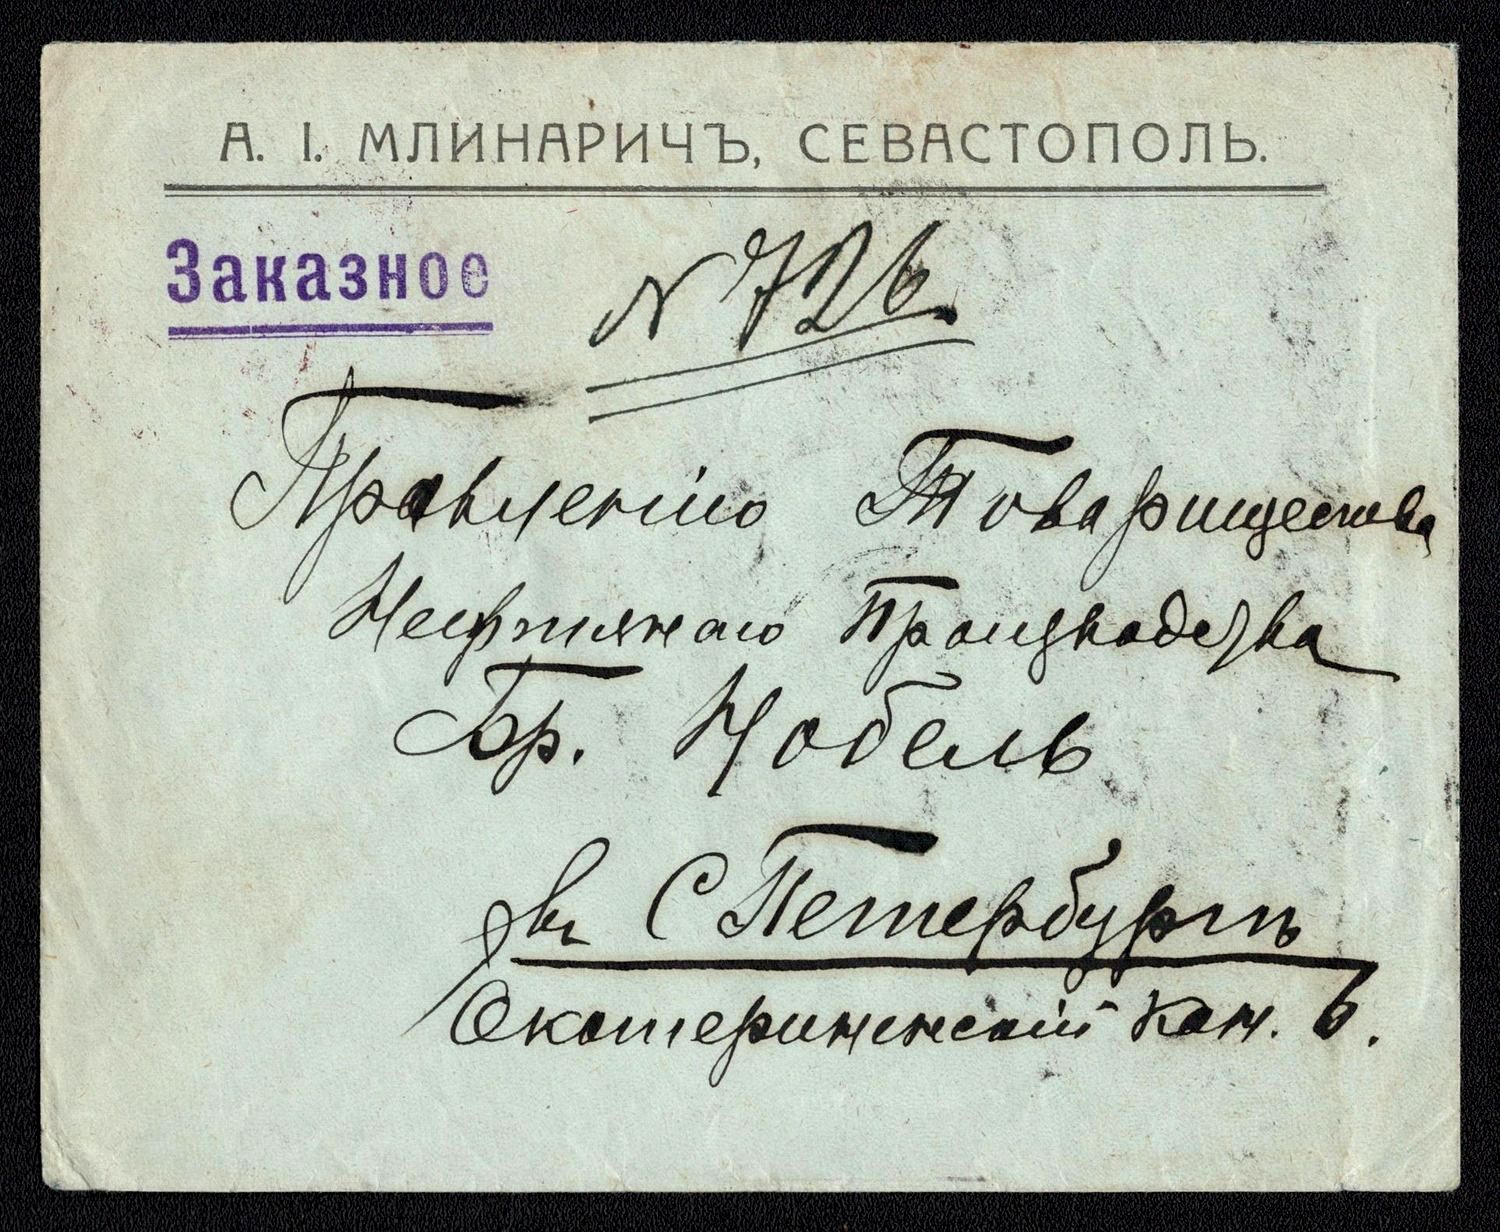 А. І. МЛИНАРИЧЪ, СЕВАСТОПОЛЬ.
Заказное
N 726
Правленію Товарищества
Нефтянаго Производства
Бр. Нобель
въ С Петербургъ
Екатерининскій Кан. 6.